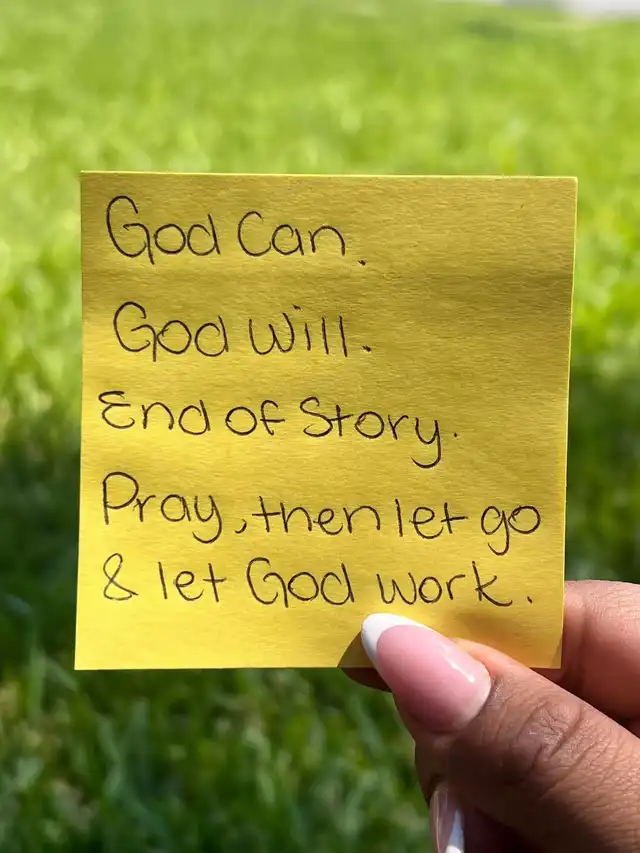 God Can.
God Will.
End of Story.
Pray, then let go
& let God work.